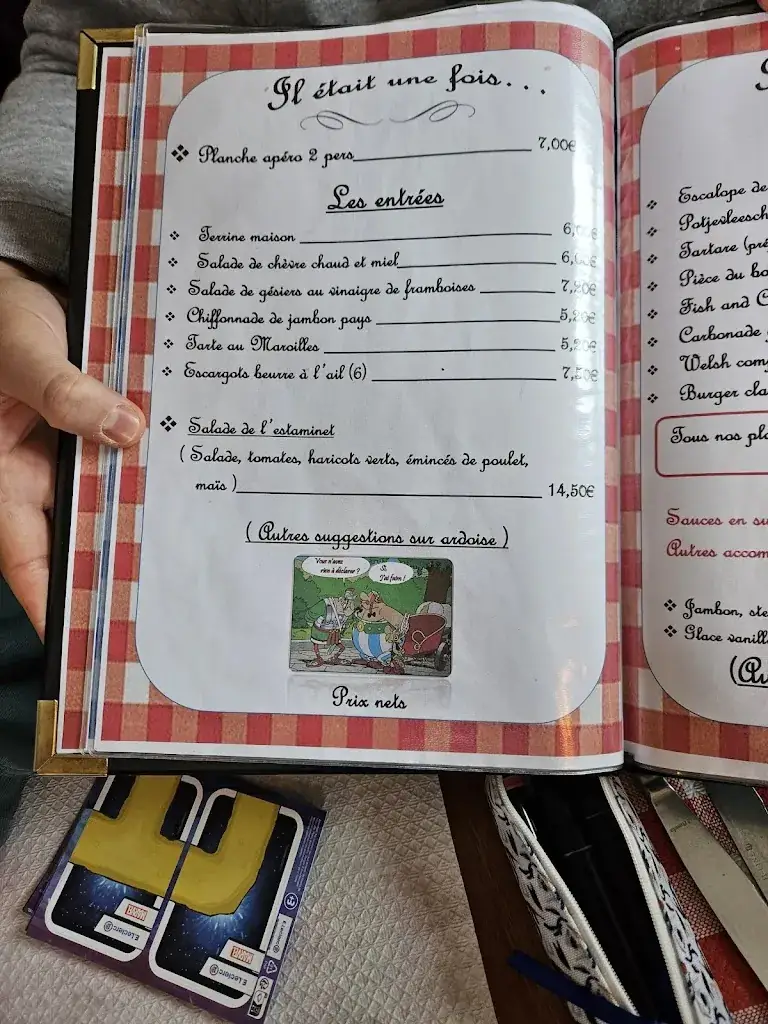 Il était une fois...
❖ Planche apéro 2 pers 7,00€
Les entrées
❖ Terrine maison
❖ Salade de chèvre chaud et miel
❖ Salade de gésiers au vinaigre de framboises 7,20€
❖ Chiffonnade de jambon pays 5,20€
❖ Tarte au Maroilles 5,20€
❖ Escargots beurre à l'ail (6) 7,50€
❖ Salade de l'estaminet
( Salade, tomates, haricots verts, émincés de poulet,
maïs ) 14,50€
( Autres suggestions sur ardoise )
Vous n'avez
rien à déclarer ?
Si,
J'ai faim !
Prix nets
❖ Escalope de
❖ Potjevleesch
❖ Tartare (pré
❖ Pièce du bo
❖ Fish and C
❖ Carbonade
❖ Welsh com
❖ Burger cla
Tous nos pla
Sauces en su
Autres accom
❖ Jambon, ste
❖ Glace vanill
(Au
MARVEL
E.Leclerc
MARVEL
E.Leclerc
E.Leclerc